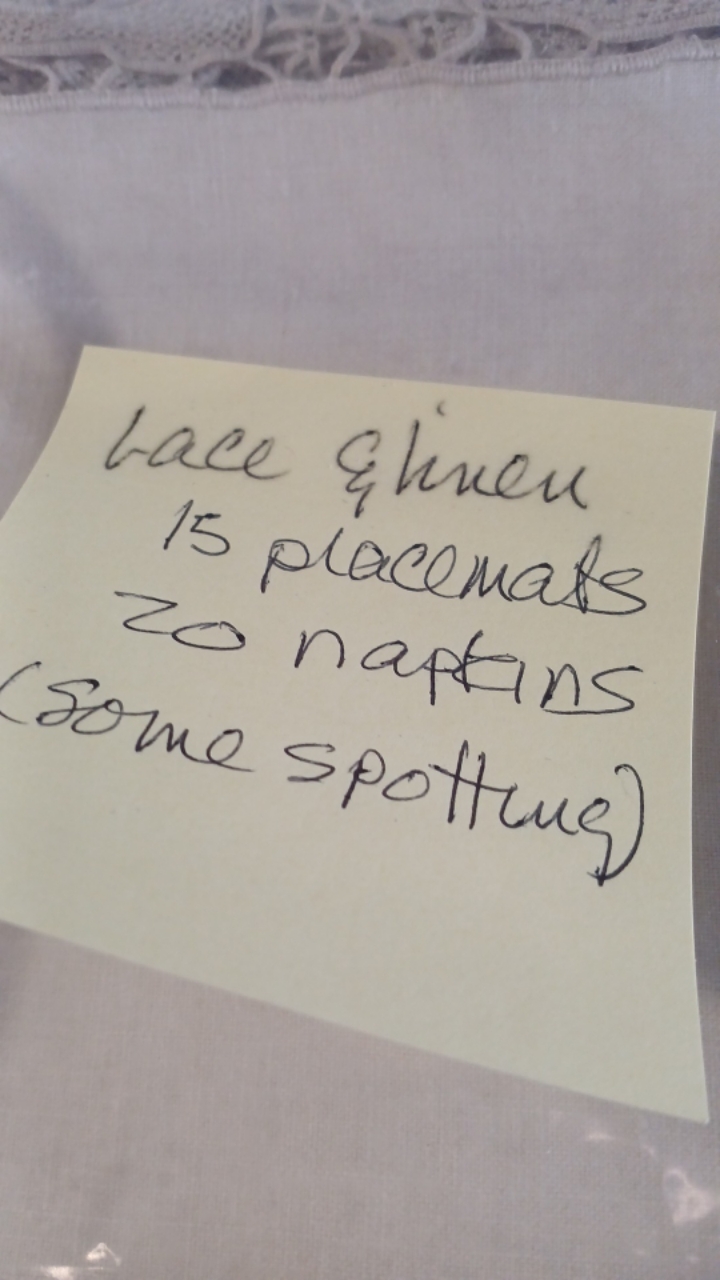 Lace & linen
15 placemats
20 napkins
(some spotting)